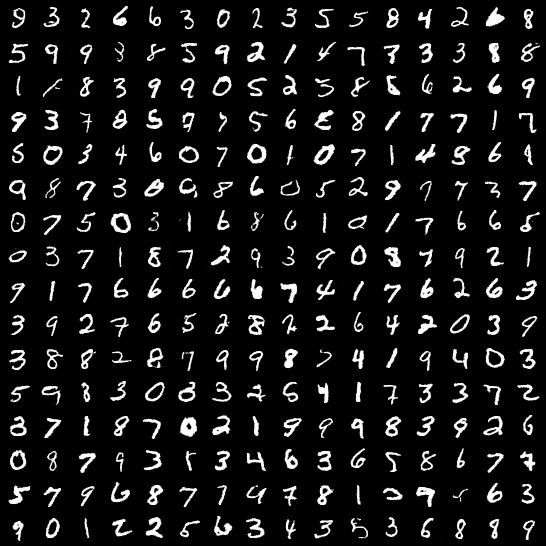 9 3 2 6 6 3 0 2 3 5 5 8 4 2 6 8
5 9 9 8 8 5 9 2 1 4 7 7 3 3 8 8
1 8 3 9 9 0 5 2 5 8 8 6 2 6 9
9 3 7 8 5 7 7 5 6 8 8 1 7 7 1 7
5 0 3 4 6 0 7 0 1 0 7 1 4 8 6 9
9 8 7 3 0 9 8 6 0 5 2 9 7 7 3 7
0 7 5 0 3 1 6 8 6 1 0 1 7 6 6 5
0 3 7 1 8 7 2 9 3 9 0 8 7 9 2 1
9 1 7 6 6 6 6 6 7 4 1 7 6 2 6 3
3 9 2 7 6 5 2 8 2 2 6 4 2 0 3 9
3 8 8 2 8 7 9 9 8 7 4 1 9 4 0 3
5 9 8 3 0 8 3 2 5 4 1 7 3 3 7 2
8 7 1 8 7 0 2 1 9 9 9 8 3 9 2 6
0 8 7 9 3 1 3 4 6 3 6 5 8 6 7 7
5 7 9 6 8 7 7 9 7 8 1 9 6 3
9 0 1 2 2 5 6 3 4 3 3 6 8 8 9